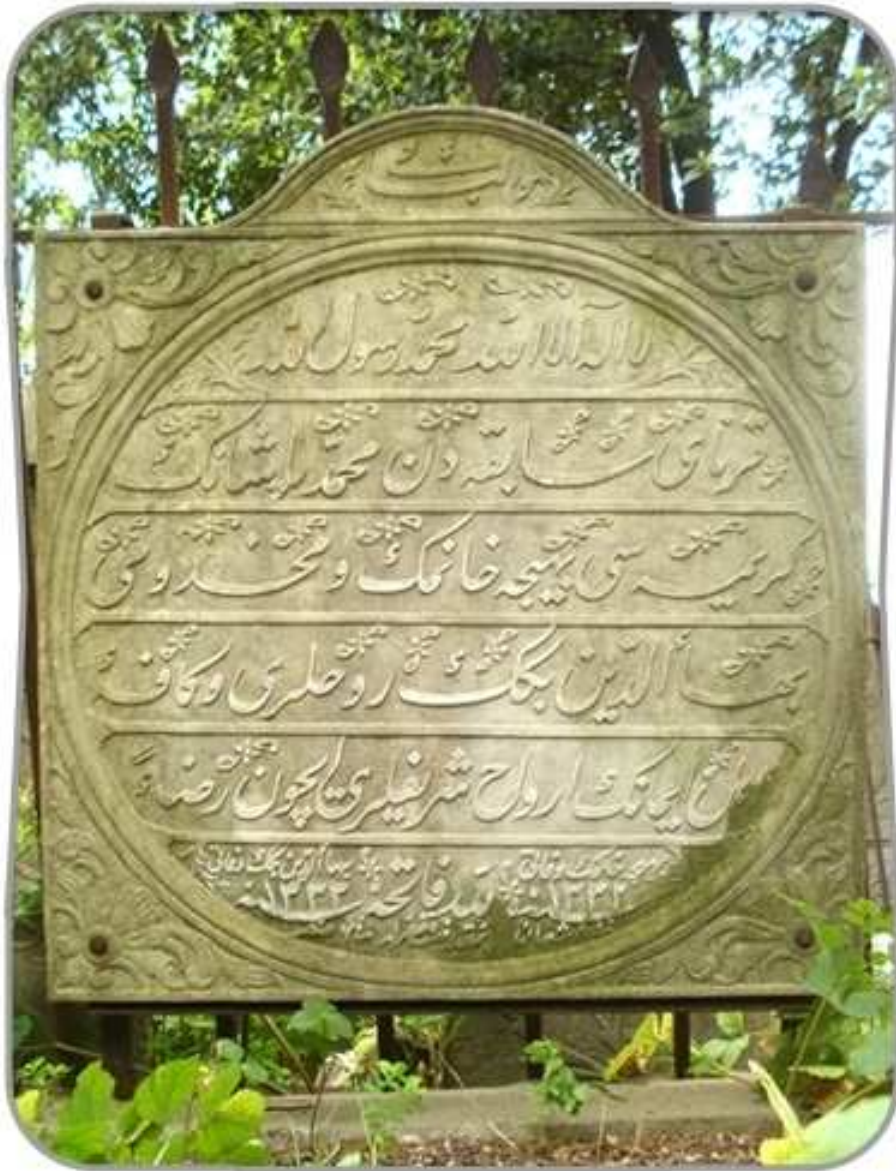 هو الباقی
لا اله الا الله محمد رسول الله
قرنای سابقه دن محمد پاشانك
کریمه سی بهیجه خانمك و مخدومی
بهاء الدین بكك روحلری و کافۀ
ایمانك ارواح شریفلری ایچون رضاءً
لله فاتحه
سنه ١٣٣٢ سنه ١٣٣٢